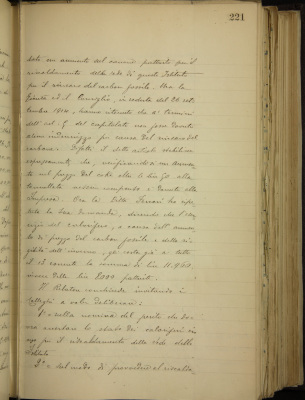 221
dato un aumento del canone pattuito per il
riscaldamento della sede di questo Istituto
per il rincaro del carbon fossile. Ma la
Giunta ed il Consiglio, in seduta del 26 set-
tembre 1914, hanno ritenuto che a' termini
dell'art. 9 del capitolato non fosse dovuto
alcun indennizzo per causa del rincaro del
carbone. Infatti il detto articolo stabilisce
espressamente che, verificandosi un aumen-
to nel prezzo del coke oltre le lire 50 alla
tonnellata nessun compenso è dovuto alla
Impresa. Ora la Ditta Ferrari ha ripe-
tuto la sua domanda, dicendo che l'eser-
cizio del calorifero, a causa dell'aumen-
to di prezzo del carbon fossile e della ri-
gidità dell'inverno, gli costa già a tutto
il 15 corrente la somma di lire
invece delle lire 2000 pattuite.
Il Relatore conchiude invitando i
Colleghi a voler deliberare:
1° - sulla nomina del perito che do-
vrà accertare lo stato dei caloriferi in
uso per il riscaldamento della sede dello
Istituto
2° - sul modo di provvedere al riscalda-